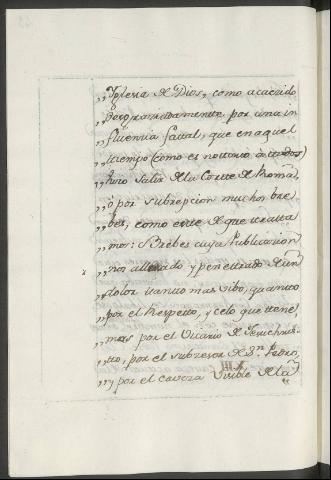 „Yglesia de Dios, como acaecido
„Desgraciadamente por una in
„fluencia fatal, que en aquel
„tiempo (como es notorio à todos)
„hizo salir de la Corte de Roma,
„ò por subrepcion muchos bre
„bes, como este de que tratta
„mos: Brebes cuya Publicacion
„nos ha llenado y penetrado de un
„dolor tanto mas vibo, quanto
„por el Respeto, y celo que tene
„mos por el Vicario de Jesuchris
„to, por el subcesor de Sn. Pedro,
„y por el caveza Visible de la